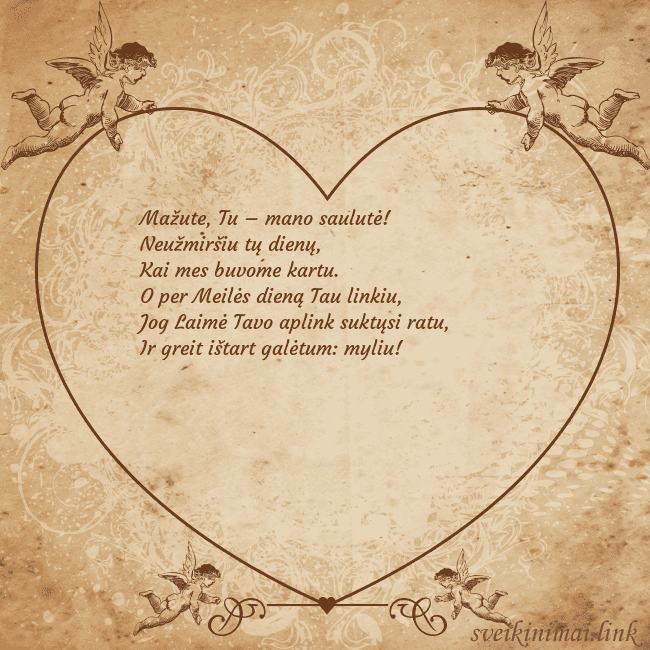 Mažute, Tu – mano saulutė!
Neužmiršiu tų dienų,
Kai mes buvome kartu.
O per Meilės dieną Tau linkiu,
Jog Laimė Tavo aplink suktųsi ratu,
Ir greit ištart galėtum: myliu!
sveikinimai.link